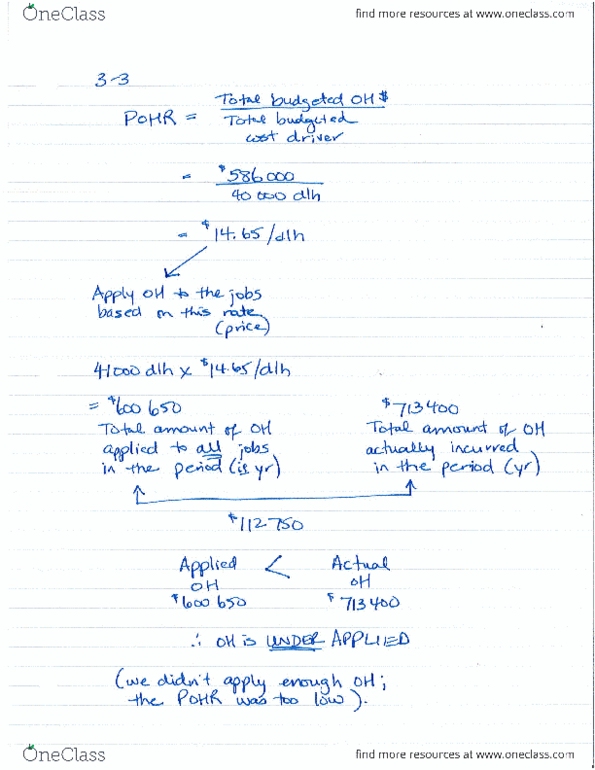 OneClass
find more resources at www.oneclass.com
3-3
POHR = Total budgeted OH $
Total budgeted
cost driver
= $586 000
40 000 dlh
= $14.65/dlh
Apply OH to the jobs
based on this rate
(price)
41000 dlh x $14.65/dlh
= $600 650
Total amount of OH
applied to all jobs
in the period (ie yr)
$713 400
Total amount of OH
actually incurred
in the period (yr)
$112 750
Applied < Actual
OH OH
$600 650 $713 400
∴ OH is UNDER APPLIED
(we didn't apply enough OH;
the POHR was too low).
OneClass
find more resources at www.oneclass.com